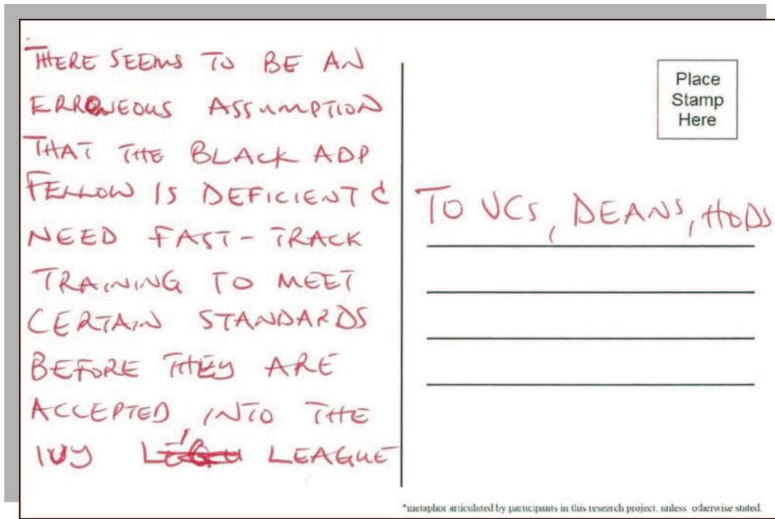 THERE SEEMS TO BE AN
ERRONEOUS ASSUMPTION
THAT THE BLACK ADP
FELLOW IS DEFICIENT &
NEED FAST-TRACK
TRAINING TO MEET
CERTAIN STANDARDS
BEFORE THEY ARE
ACCEPTED INTO THE
IVY LEAGUE
Place
Stamp
Here
TO VCs, DEANS, HODS
*metaphor articulated by participants in this research project, unless otherwise stated.